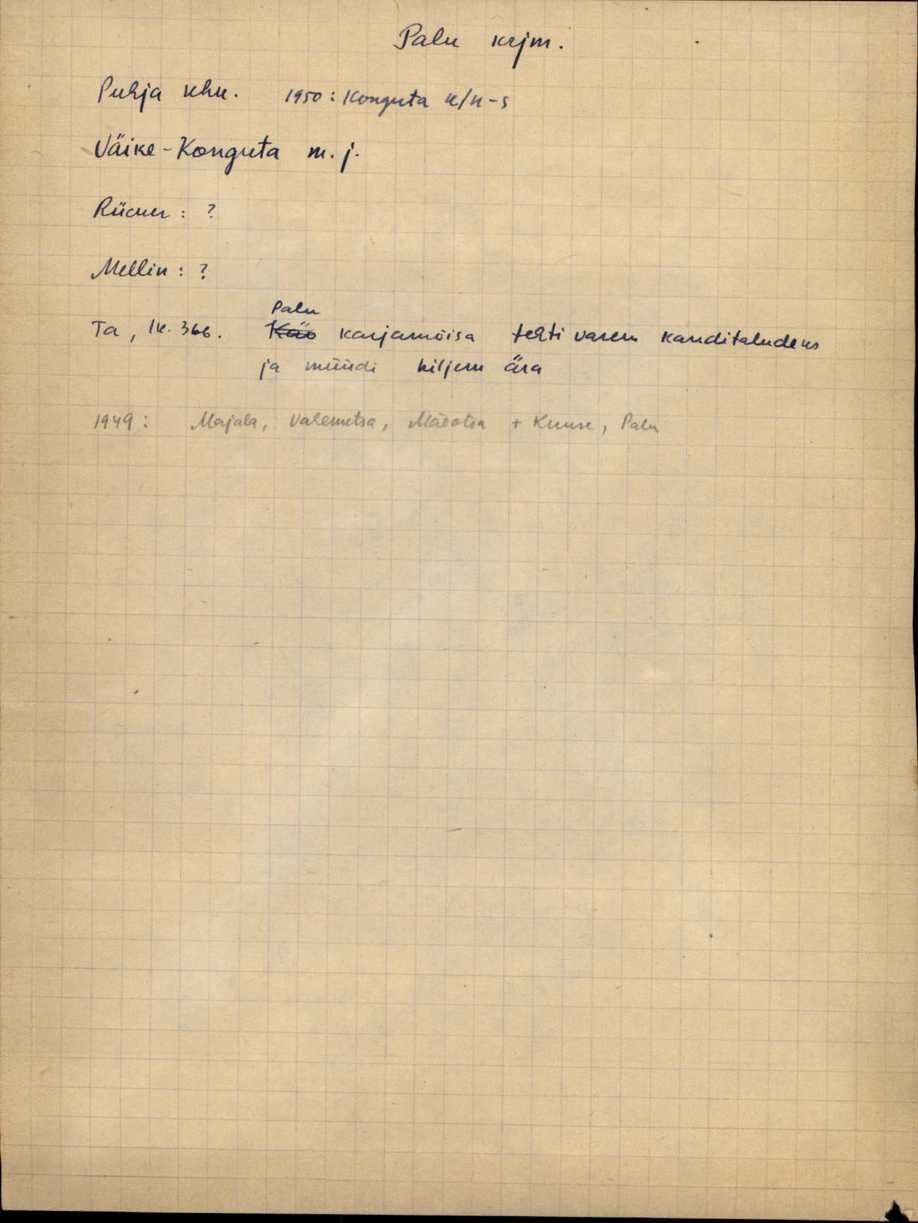 Palu krjm.
Puhja khk. 1950: Konguta k/n-s
Väike-Konguta m. j.
Rücker: ?
Mellin: ?
Palu
Ta, lk. 366. Käo karjamõisa tehti varem kanditaludeks
ja müüdi hiljem ära
1949: Majala, Vahemetsa, Mäeotsa + Kuuse, Palu